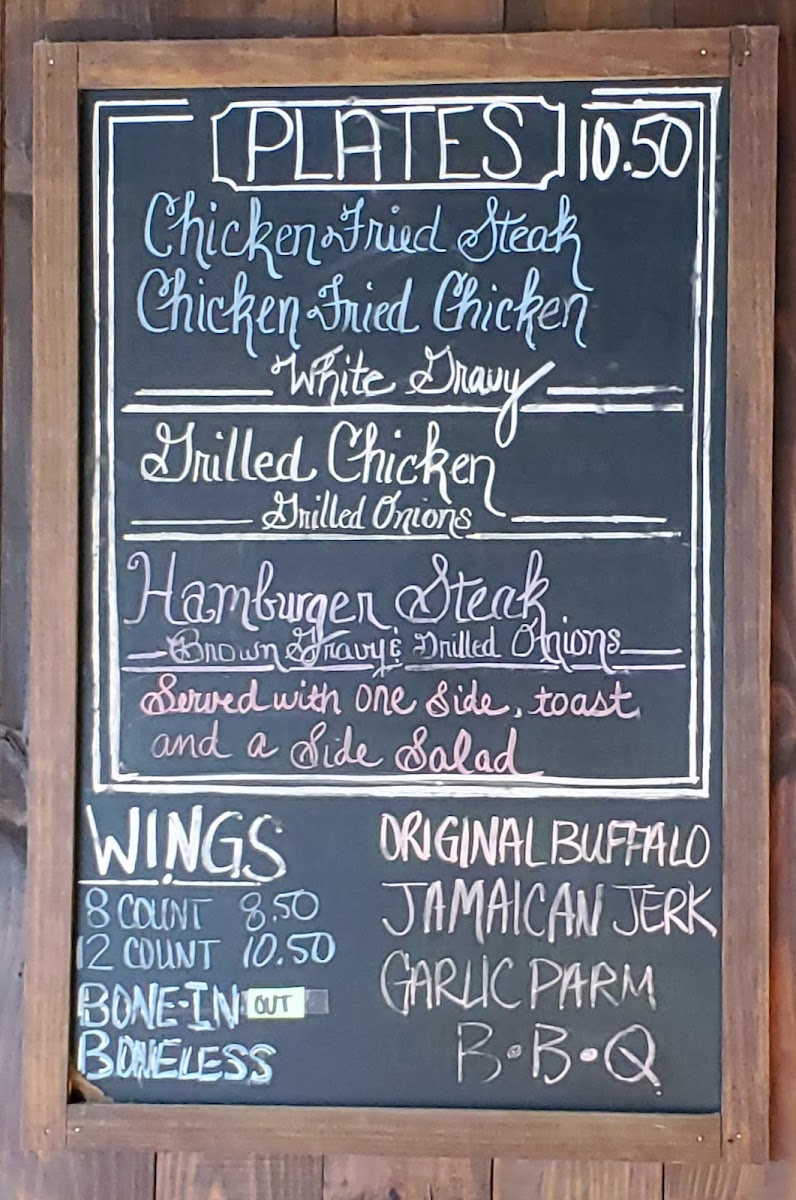 PLATES 10.50
Chicken Fried Steak
Chicken Fried Chicken
White Gravy
Grilled Chicken
Grilled Onions
Hamburger Steak
Brown Gravy & Grilled Onions
Served with one side, toast
and a side salad
WINGS
8 COUNT 8.50
12 COUNT 10.50
BONE-IN OUT
BONELESS
ORIGINAL BUFFALO
JAMAICAN JERK
GARLIC PARM
B•B•Q